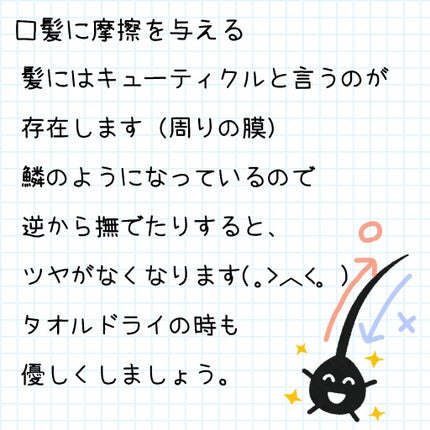 □髪に摩擦を与える
髪にはキューティクルと言うのが
存在します（周りの膜）
鱗のようになっているので
逆から撫でたりすると、
ツヤがなくなります(｡>︿<｡ )
タオルドライの時も
優しくしましょう。